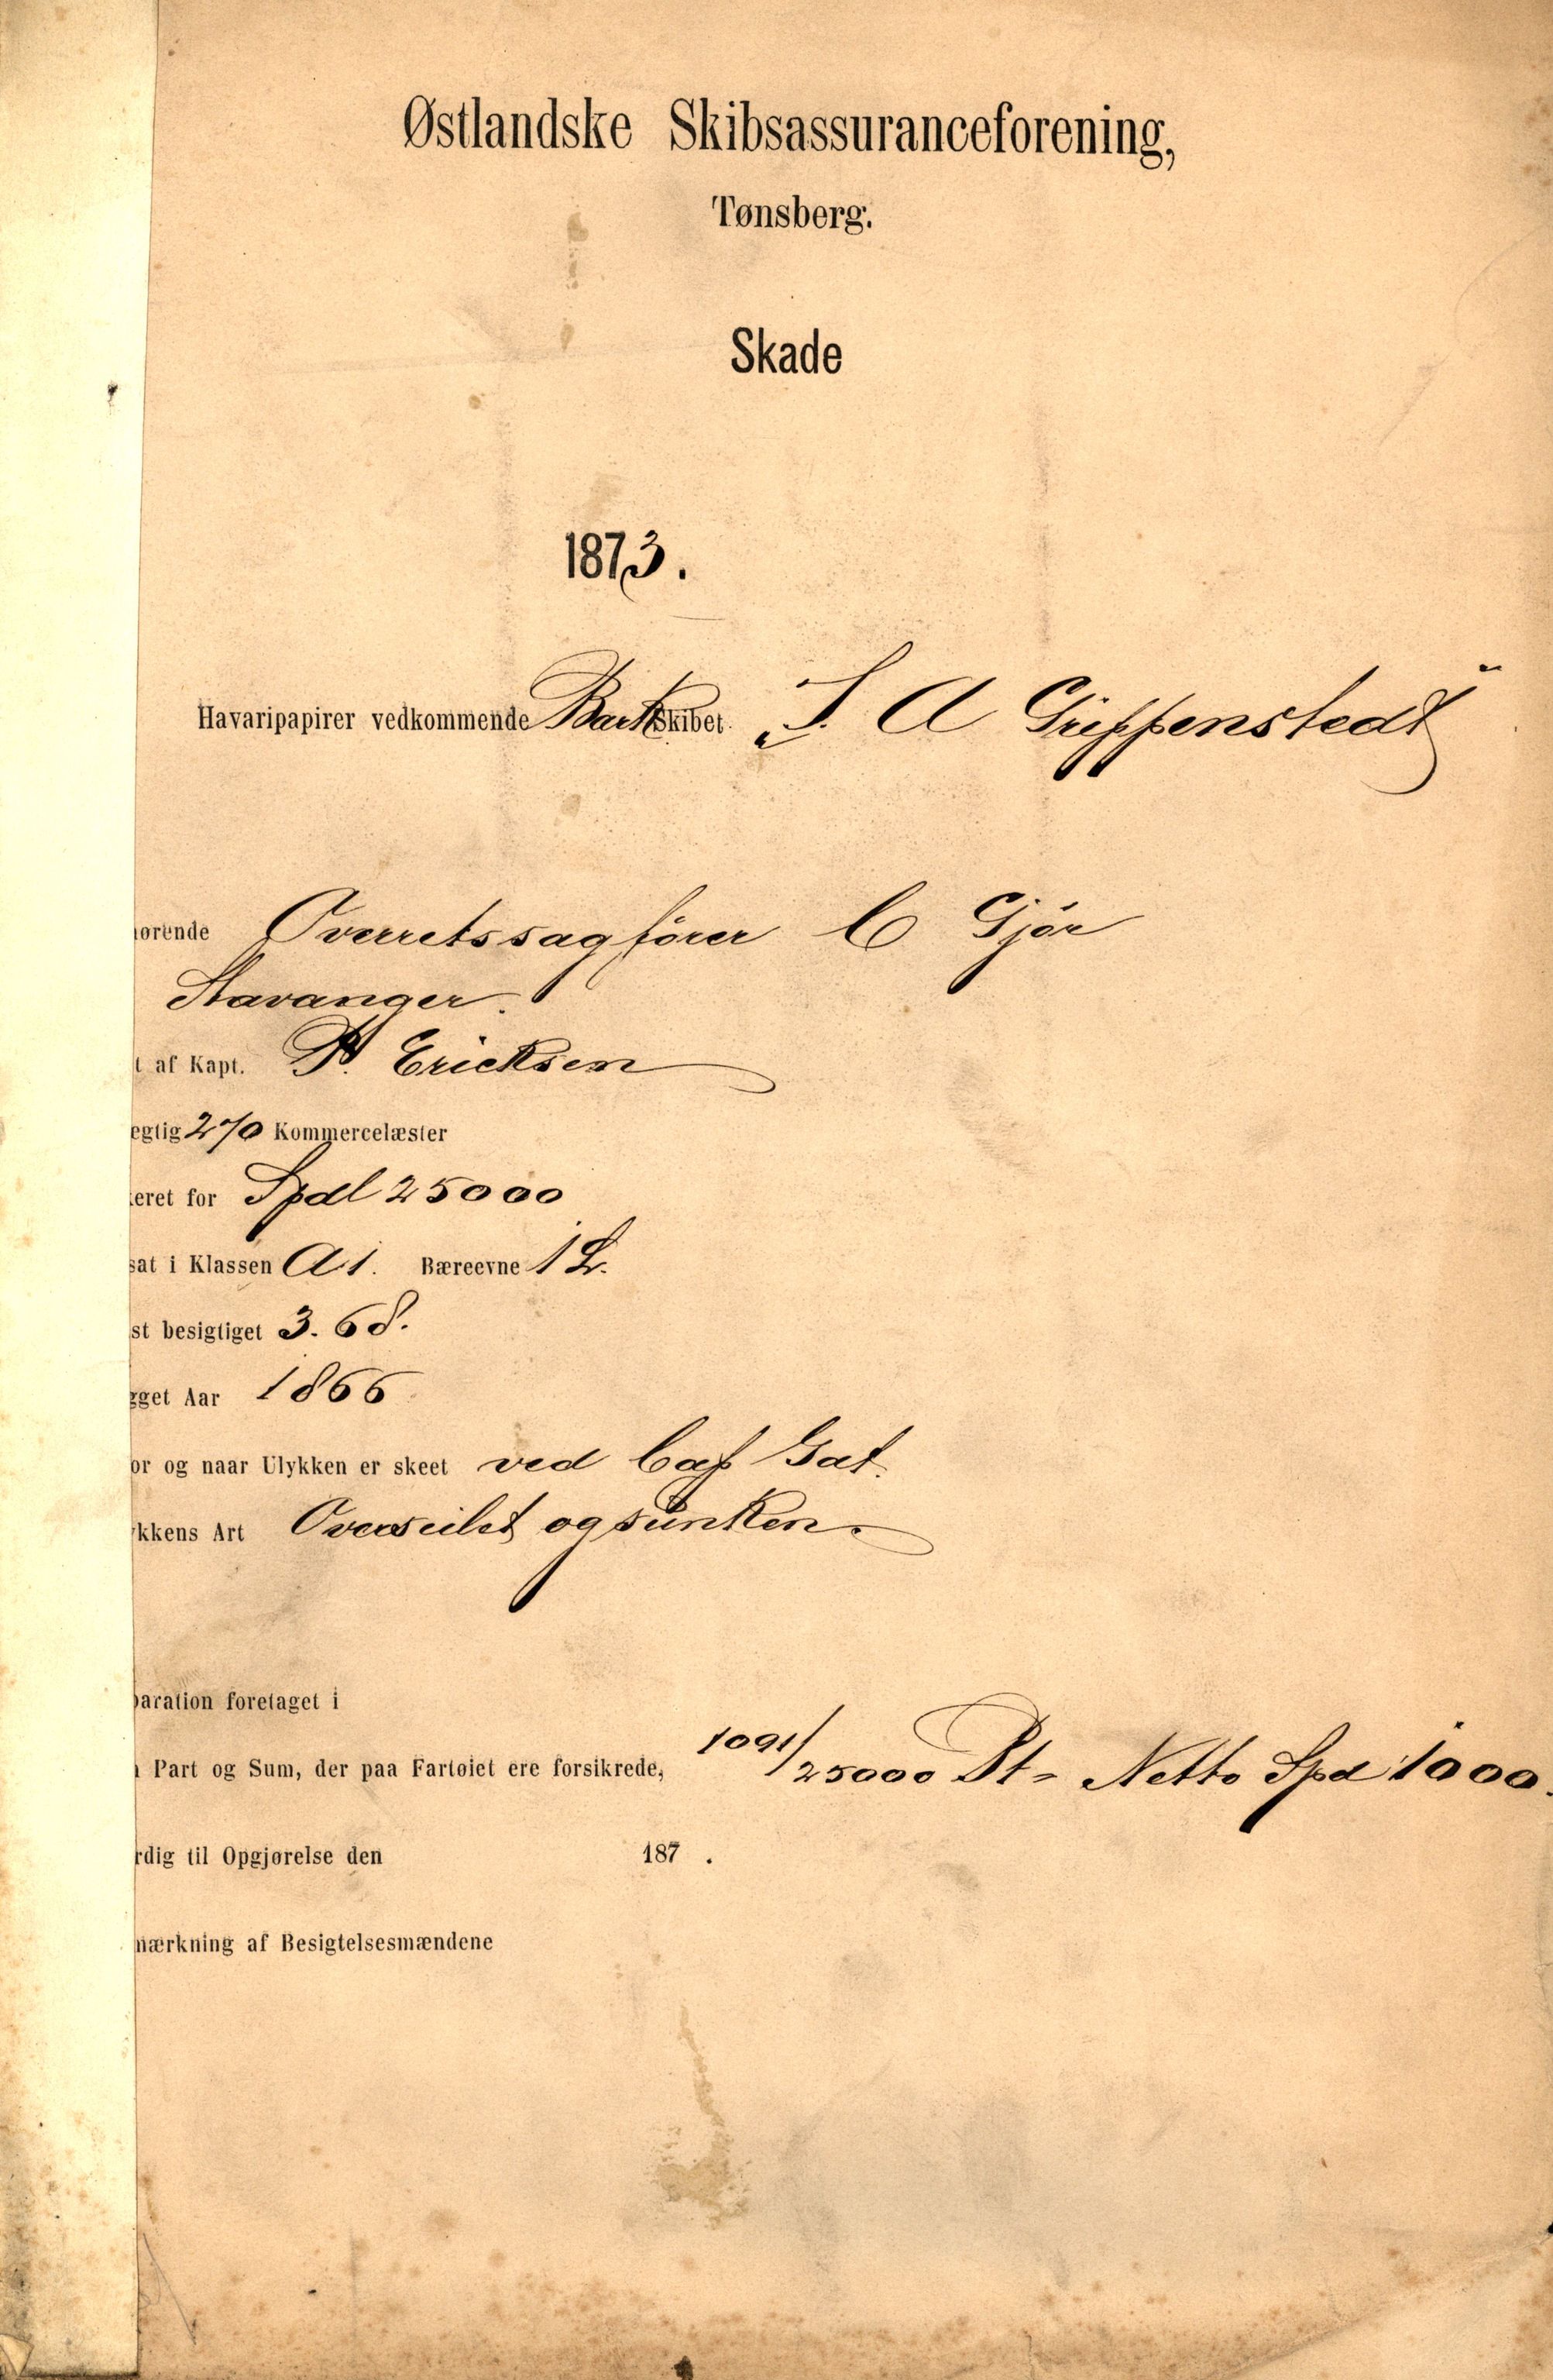 Østlandske Skibsassuranceforening,
Tønsberg.
Skade
1873.
Havaripapirer vedkommende Barkskibet „J. A Grippenstedt"
ørende Overretssagfører C Gjör
Stavanger.
t af Kapt. P. Ericksen
egtig 270 Kommercelæster
eret for Spdl 25000
sat i Klassen A 1. Bæreevne 1 Lr.
st besigtiget 3. 68.
gget Aar 1866
or og naar Ulykken er skeet ved Cap Gat.
kkens Art Overseilet og sunken.
paration foretaget i
Part og Sum, der paa Fartøiet ere forsikrede, 1091/25000 Pt = Netto Spd 1000.
rdig til Opgjørelse den 187 .
mærkning af Besigtelsesmændene